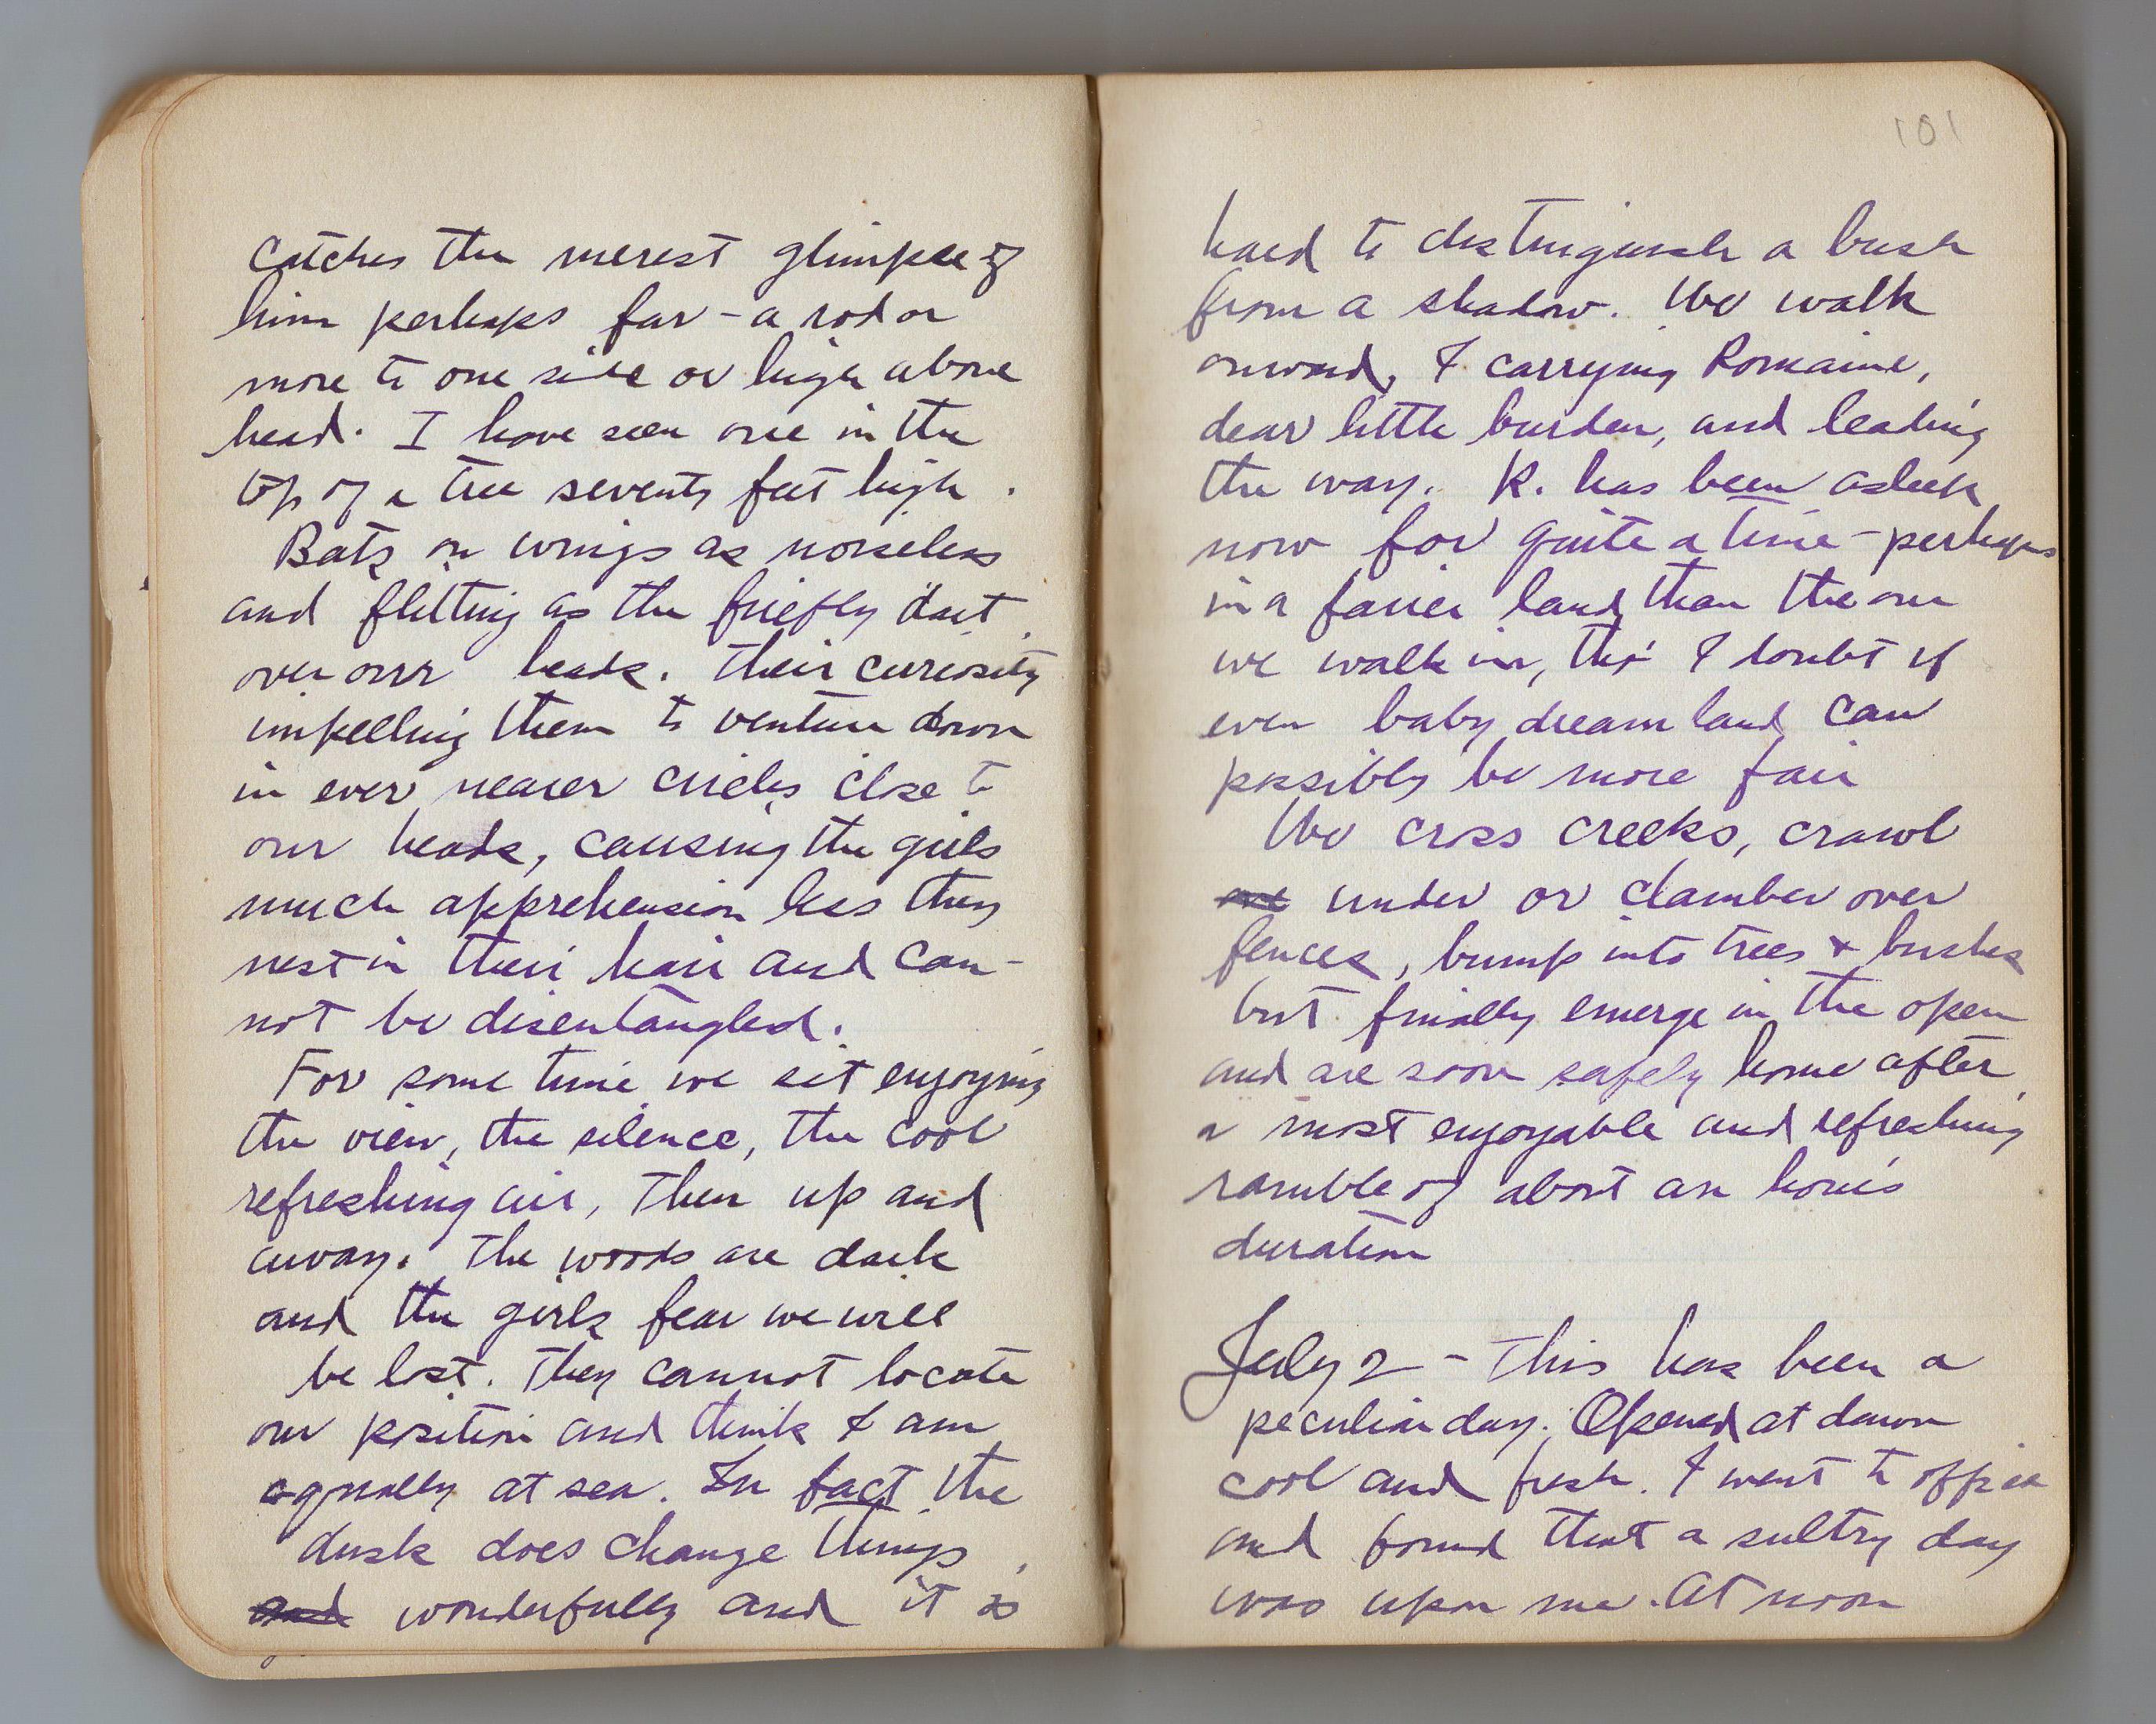 catches the merest glimpse of
him perhaps far - a rod or
more to one side or high above
head. I have seen one in the
top of a tree seventy feet high.
Bats on wings as noiseless
and flitting as the firefly dart
over our heads. Their curiosity
impelling them to venture down
in ever nearer circles close to
our heads, causing the girls
much apprehension less they
nest in their hair and can-
not be disentangled.
For some time we sit enjoying
the view, the silence, the cool
refreshing air, then up and
away. The woods are dark
and the girls fear we will
be lost. They cannot locate
our position and think I am
equally at sea. In fact the
dusk does change things
and wonderfully and it is
101
hard to distinguish a bush
from a shadow. We walk
onward, I carrying Romaine,
dear little burden, and leading
the way. R. has been asleep
now for quite a time - perhaps
in a fairer land than the one
we walk in, tho' I doubt if
even baby dream land can
possibly be more fair
We cross creeks, crawl
under or clamber over
fences, bump into trees & bushes
but finally emerge in the open
and are soon safely home after
a most enjoyable and refreshing
ramble of about an hour's
duration
July 2 - This has been a
peculiar day. Opened at dawn
cool and fresh. I went to office
and found that a sultry day
was upon me. At noon